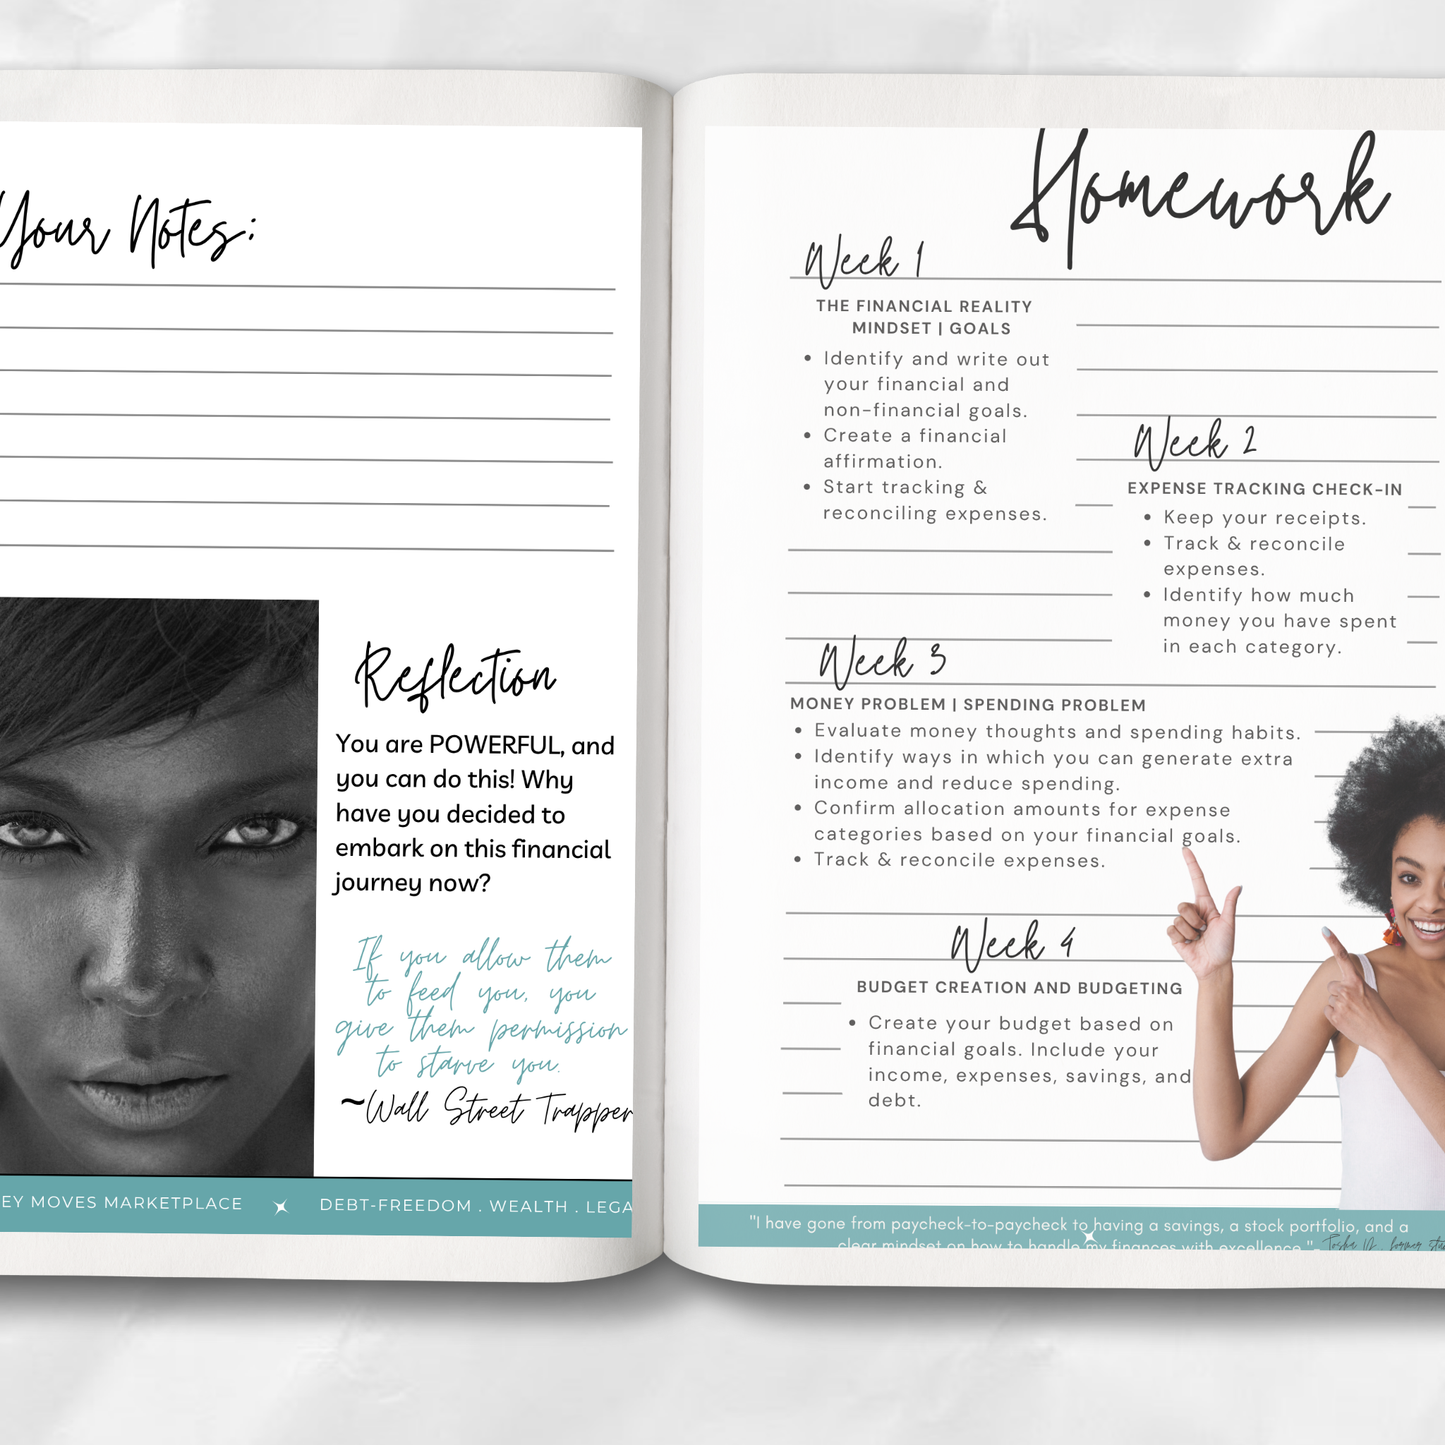 Your Notes:
Reflection
You are POWERFUL, and
you can do this! Why
have you decided to
embark on this financial
journey now?
If you allow them
to feed you, you
give them permission
to starve you.
~Wall Street Trapper
EY MOVES MARKETPLACE
DEBT-FREEDOM . WEALTH . LEGA
Homework
Week 1
THE FINANCIAL REALITY
MINDSET | GOALS
• Identify and write out
your financial and
non-financial goals.
• Create a financial
affirmation.
• Start tracking &
reconciling expenses.
Week 2
EXPENSE TRACKING CHECK-IN
• Keep your receipts.
• Track & reconcile
expenses.
• Identify how much
money you have spent
in each category.
Week 3
MONEY PROBLEM | SPENDING PROBLEM
• Evaluate money thoughts and spending habits.
• Identify ways in which you can generate extra
income and reduce spending.
• Confirm allocation amounts for expense
categories based on your financial goals.
• Track & reconcile expenses.
Week 4
BUDGET CREATION AND BUDGETING
• Create your budget based on
financial goals. Include your
income, expenses, savings, and
debt.
"I have gone from paycheck-to-paycheck to having a savings, a stock portfolio, and a
clear mindset on how to handle my finances with excellence."-